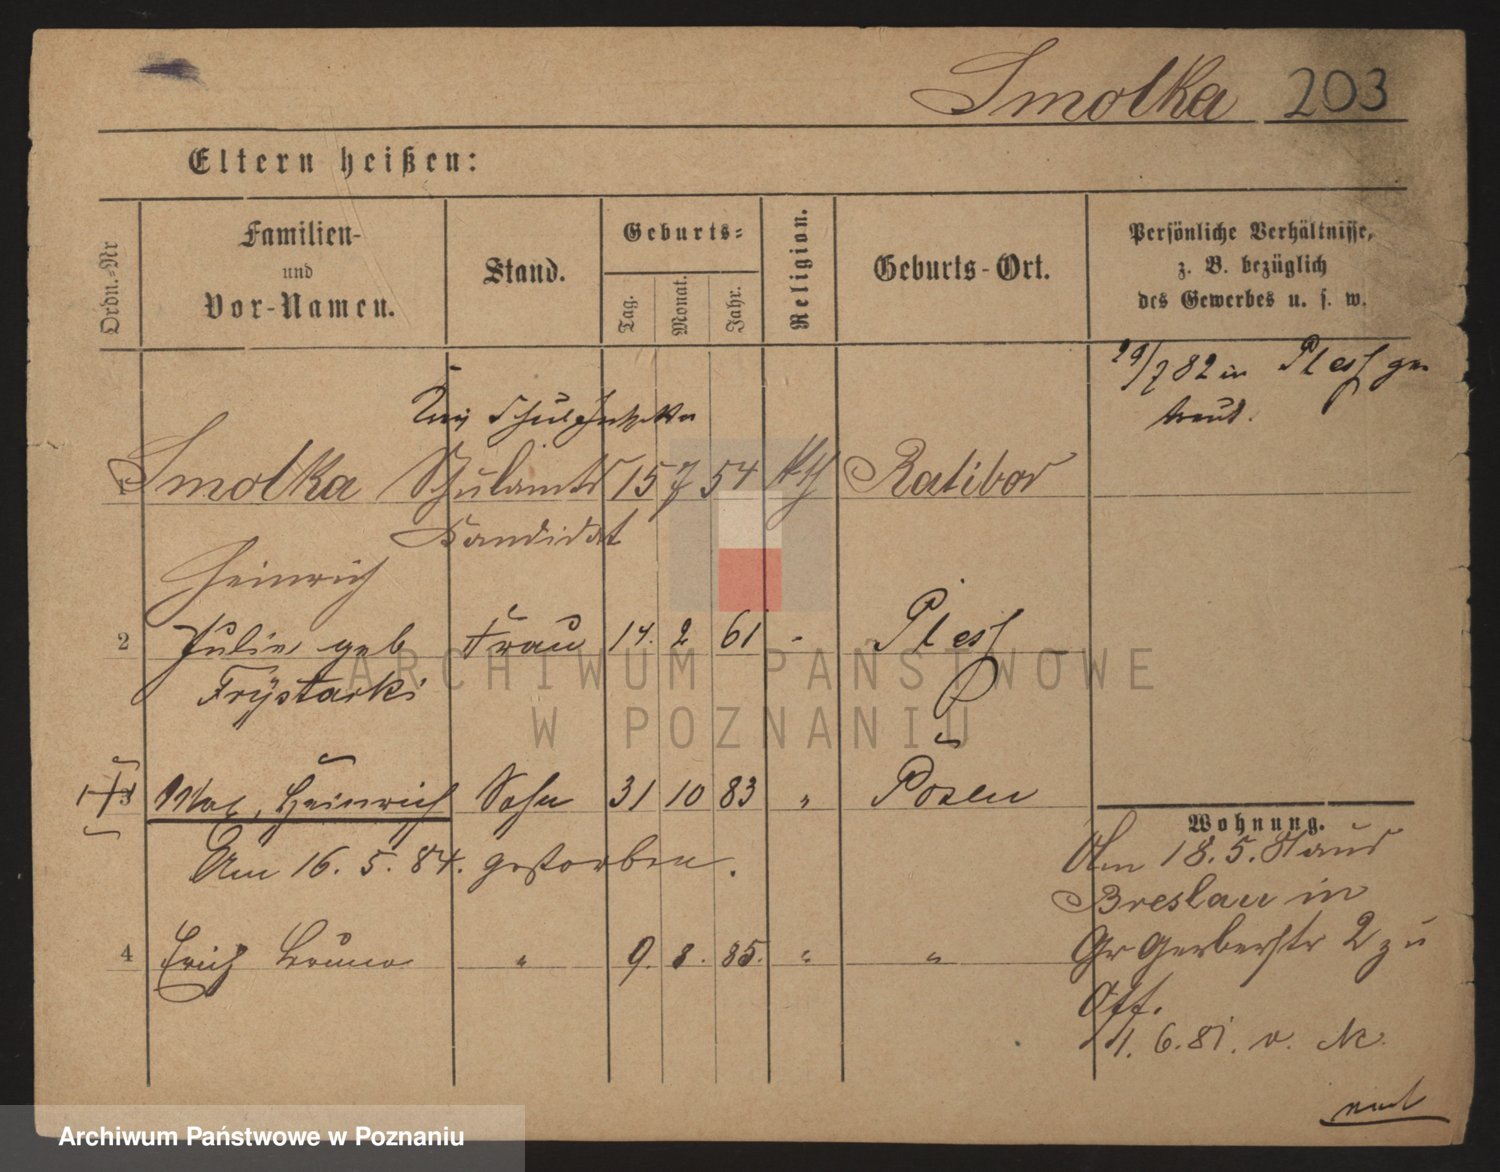 Smolka 203
Eltern heißen:
Ordn.-Nr
Familien-
und
Vor-Namen.
Stand.
Geburts-
Tag.
Monat.
Jahr.
Religion.
Geburts-Ort.
Persönliche Verhältnisse,
z. B. bezüglich
des Gewerbes u. s. w.
29/7 82 in Pless ge
traut.
Smolka Schulamts 15 7 54 kth Ratibor
Kandidat
Heinrich
2 Julie geb Frau 14. 2 61 - Pless
Frystacki
3 Max, Heinrich Sohn 31 10 83 " Posen
Am 16. 5. 84. gestorben.
Wohnung.
Am 18. 5. 81 aus
Breslau in
Gr Gerberstr 2 zu
4 Erich Bruno " 9. 8. 85. " "
1. 6. 81. v.
ARCHIWUM PAŃSTWOWE
W POZNANIU
Archiwum Państwowe w Poznaniu